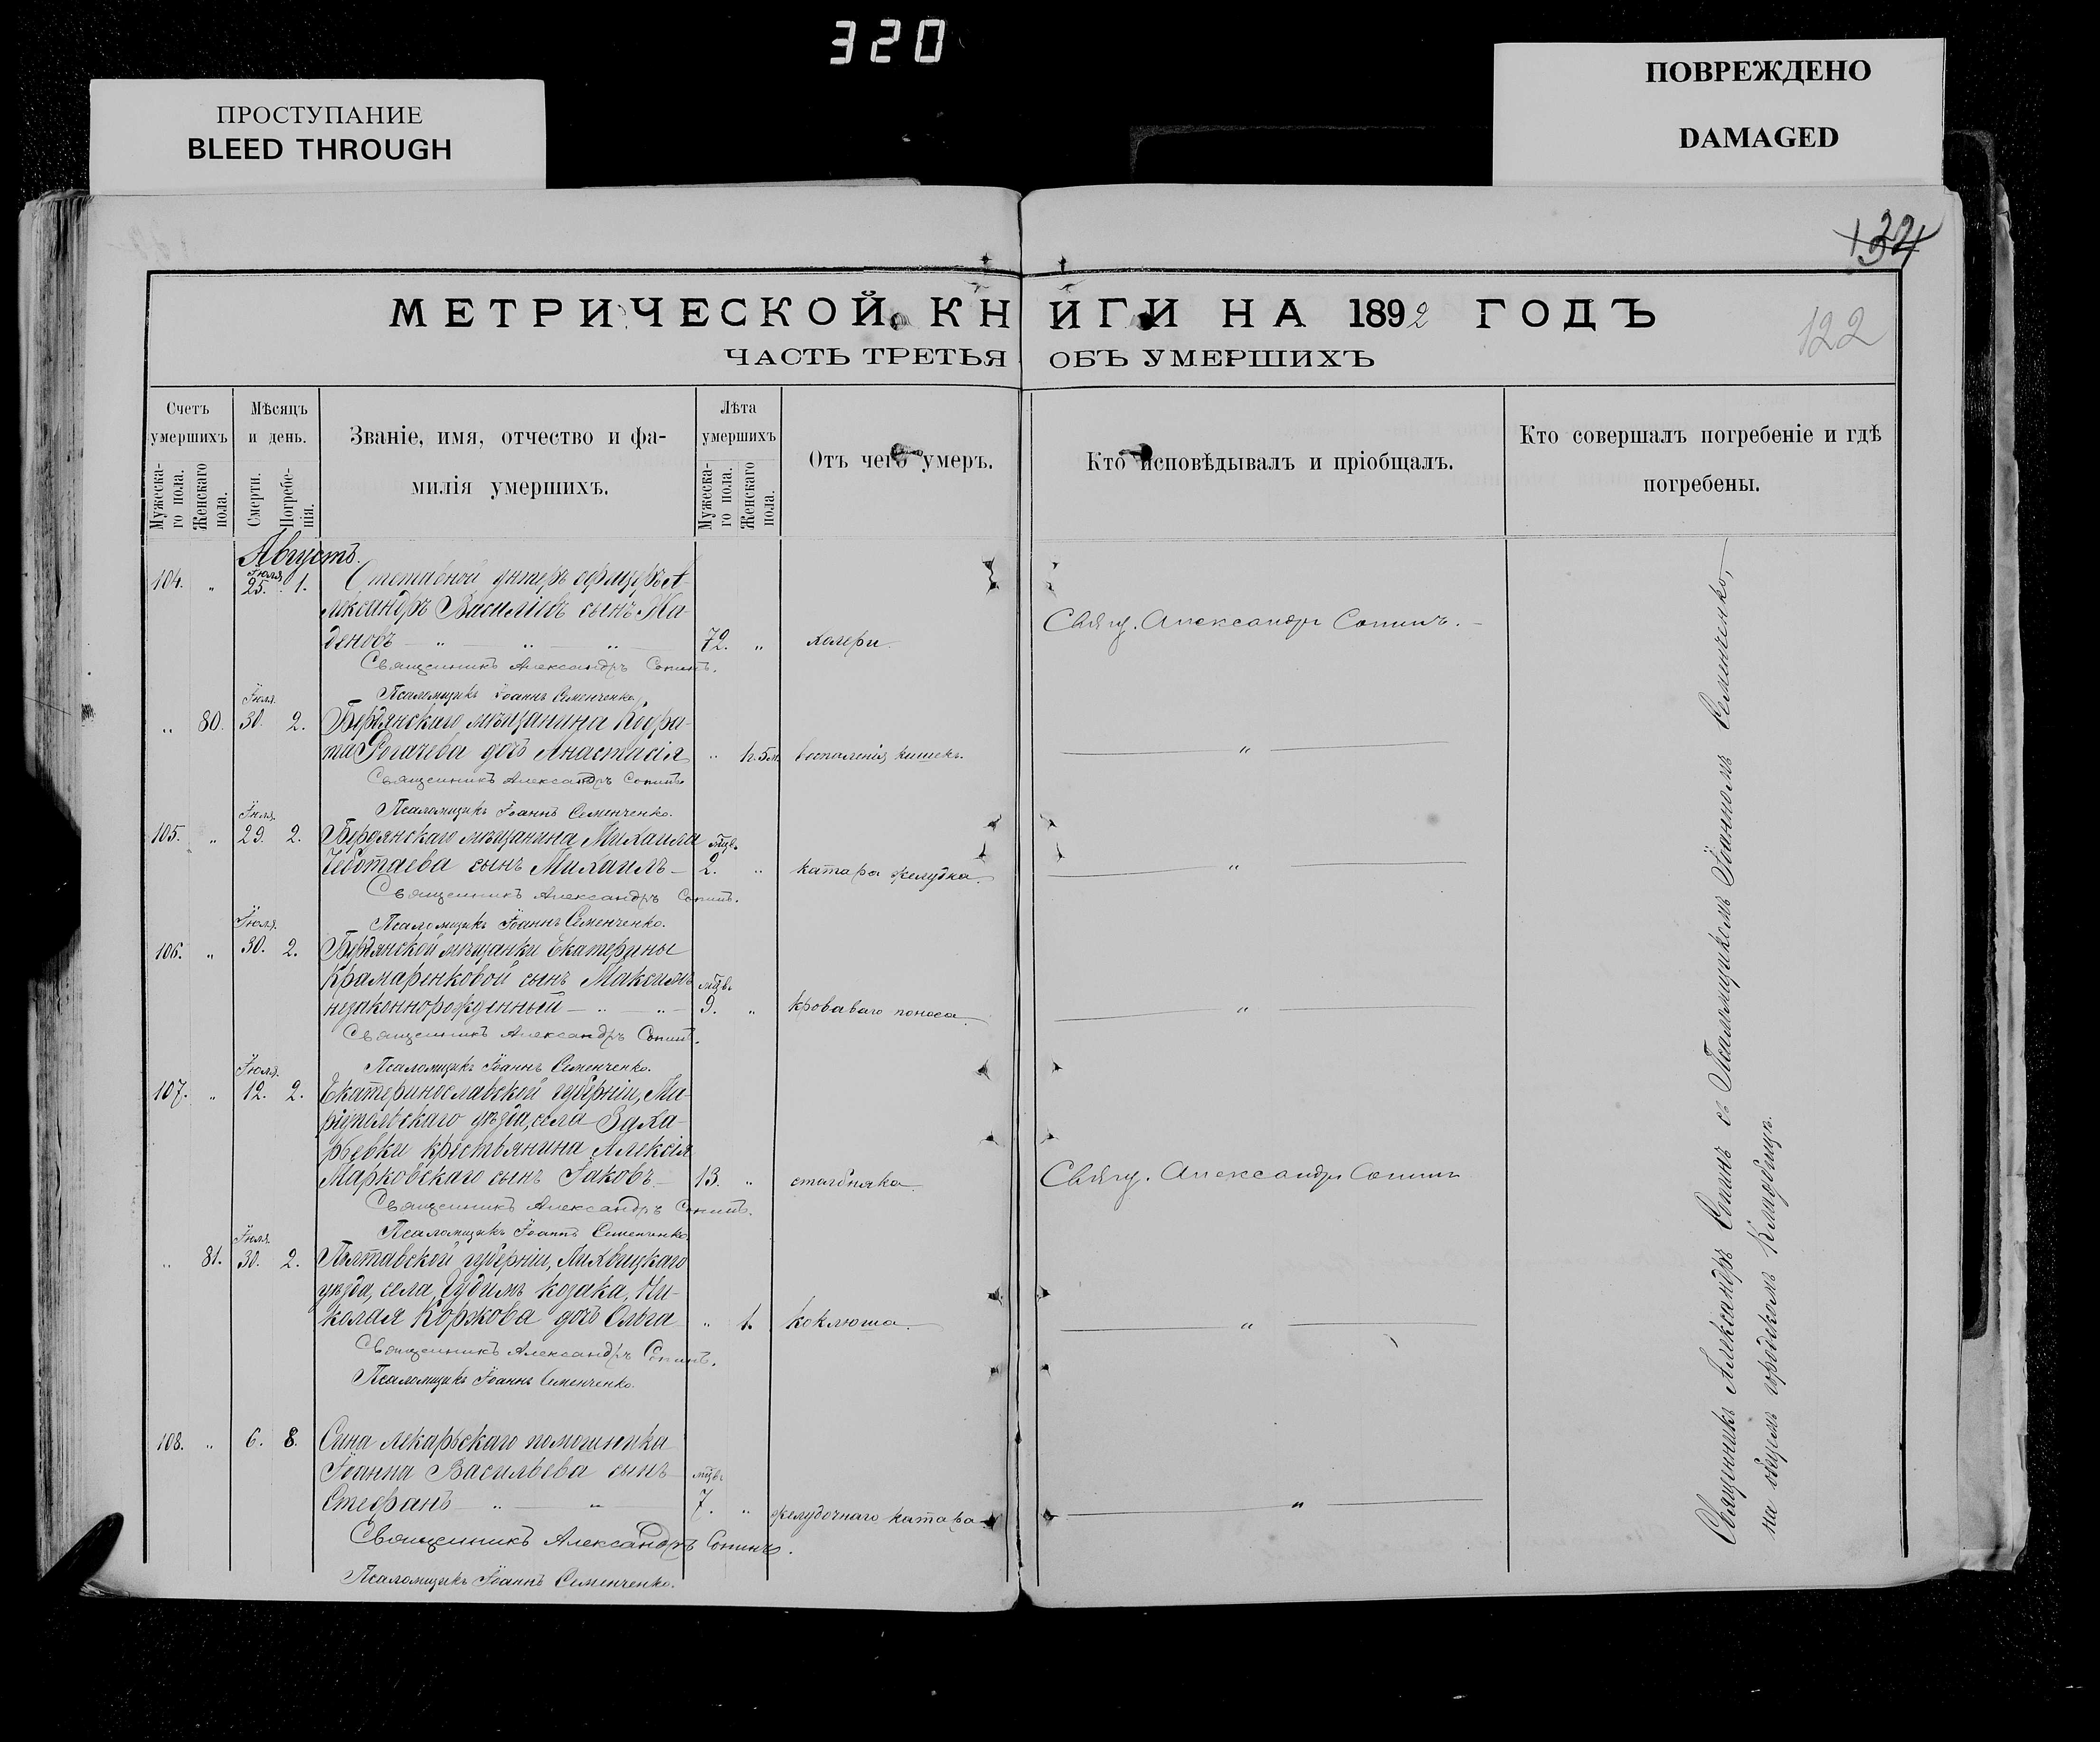 320
ПРОСТУПАНИЕ
BLEED THROUGH
ПОВРЕЖДЕНО
DAMAGED
134
122
МЕТРИЧЕСКОЙ КНИГИ НА 1892 ГОДЪ
ЧАСТЬ ТРЕТЬЯ ОБЪ УМЕРШИХЪ
Счетъ умершихъ
Мужескаго пола.
Женскаго пола.
Мѣсяцъ и день.
Смерти.
Погребенія.
Званіе, имя, отчество и фамилія умершихъ.
Лѣта умершихъ
Мужескаго пола.
Женскаго пола.
Отъ чего умеръ.
Кто исповѣдывалъ и пріобщалъ.
Кто совершалъ погребеніе и гдѣ погребены.
Августъ.
104. „ Іюля 25. 1. унтеръ офицеръ А-
лександръ Василіевъ сынъ
72. „ холеры.
Свящ. Александръ Сопинъ.
Священникъ Александръ Сопинъ.
Псаломщикъ Іоаннъ Семенченко.
„ 80. Іюля 30. 2. Бердянскаго мѣщанина Кодра-
та Рогачева дочь Анастасія „ 1г. 5м. воспаленія кишекъ. „
Священникъ Александръ Сопинъ.
Псаломщикъ Іоаннъ Семенченко.
105. „ Іюля 29. 2. Бердянскаго мѣщанина Михаила мцв.
Чеботаева сынъ Михаилъ 2. „ катара желудка. „
Священникъ Александръ Сопинъ.
Псаломщикъ Іоаннъ Семенченко.
106. „ Іюля 30. 2. Бердянской мѣщанки Екатерины
Крамаренковой сынъ Максимъ мцв.
незаконнорожденный 9. „ кроваваго поноса. „
Священникъ Александръ Сопинъ.
Псаломщикъ Іоаннъ Семенченко.
107. „ Іюля 12. 2. Екатеринославской губерніи, Ма-
ріупольскаго уѣзда, села Заха-
рьевки крестьянина Алексія
Марковскаго сынъ Іаковъ 13. „ столбняка.
Свящ. Александръ Сопинъ
Священникъ Александръ Сопинъ.
Псаломщикъ Іоаннъ Семенченко.
„ 81. Іюля 30. 2. Полтавской губерніи, Лохвицкаго
уѣзда, села козака, Ни-
колая Коржова дочь Ольга „ 1. коклюша. „
Священникъ Александръ Сопинъ.
Псаломщикъ Іоаннъ Семенченко.
108. „ 6. 8. Сына лекарьскаго помощника
Іоанна Васильева сынъ мцв.
Стефанъ 7. „ желудочнаго катара. „
Священникъ Александръ Сопинъ.
Псаломщикъ Іоаннъ Семенченко.
Священникъ Александръ Сопинъ съ Псаломщикомъ Іоанномъ Семенченко,
на общемъ городскомъ кладбищѣ.